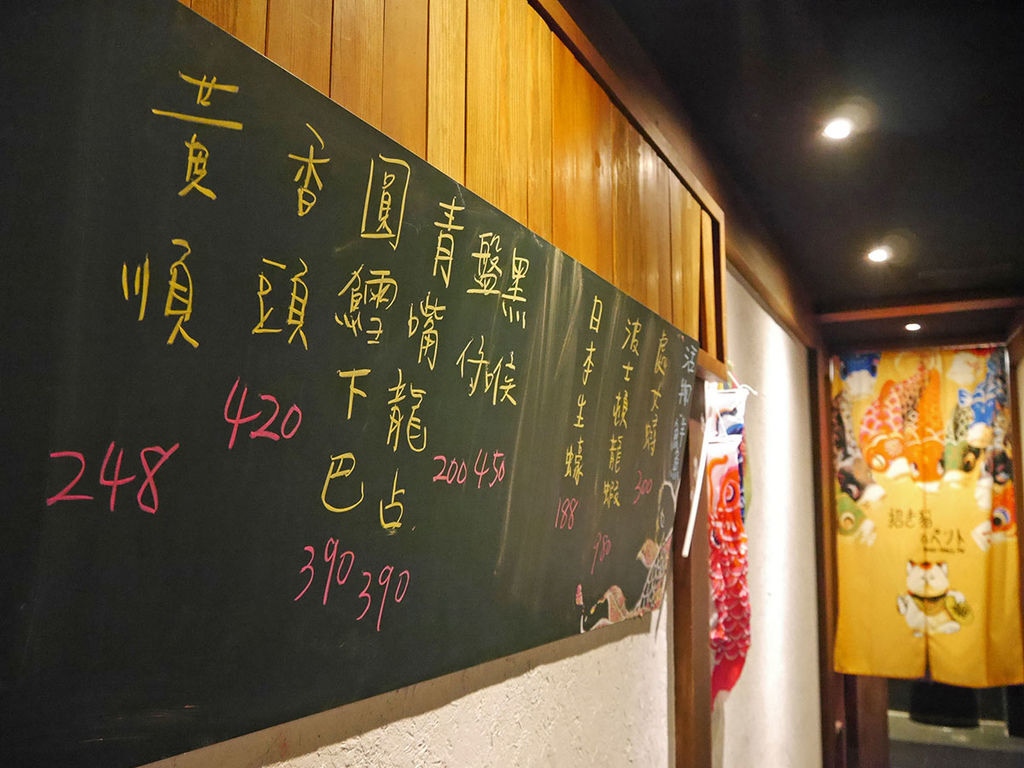 處女蟳 300
波士頓龍蝦 980
日本生蠔 188
黑喉 450
盤仔 200
青嘴龍占 390
圓鱈下巴 390
香頭 420
黃順 248
招き猫